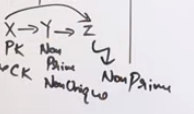 X → Y → Z
PK Non
CK Prime
NonUnique
Non Prime